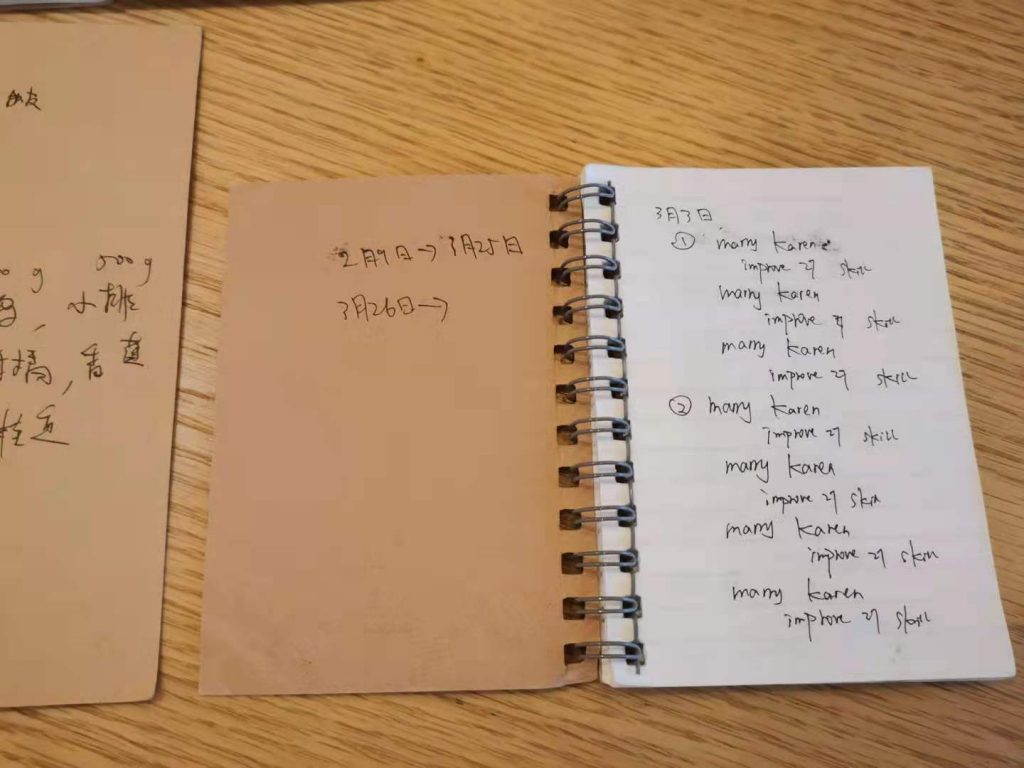 500g
小排
2月9日→3月25日
3月26日→
3月3日
① marry karen
improve skill
marry karen
improve skill
marry karen
improve skill
② marry karen
improve skill
marry karen
improve skill
marry karen
improve skill
marry karen
improve skill